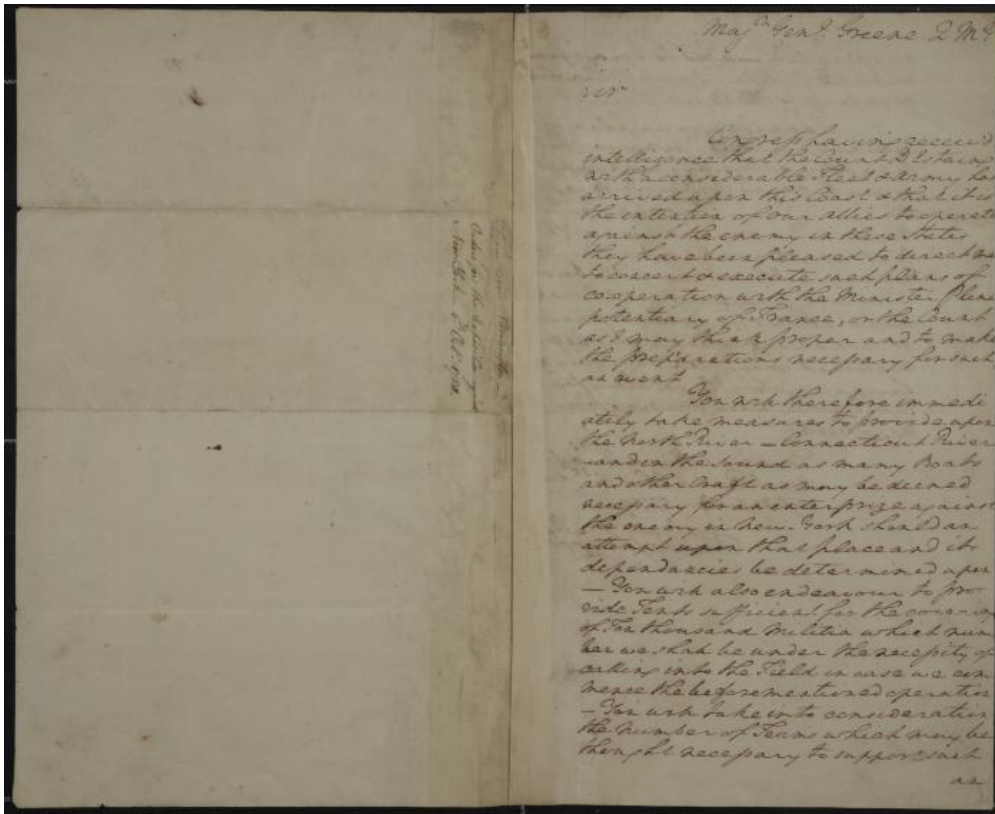 Majr Genl. Greene Q M G
Sir
Congress having receiv'd
intelligence that the Count D Estaing
with a considerable Fleet & Army has
arrived upon this Coast & that it is
the intention of our allies to operate
against the enemy in these States
they have been pleased to direct me
to concert & execute such plans of
cooperation with the Minister Pleni
potentiary of France, or the Count
as I may think proper and to make
the preparations necessary for such
an event
You will therefore immedi
ately take measures to provide upon
the North River – Connecticut River
– and in the Sound as many Boats
and other Craft as may be deemed
necessary for an enterprize against
the enemy in New-York should an
attempt upon that place and its
dependancies be determined upon
– You will also endeavour to pro
vide Tents sufficient for the covering
of Ten thousand Militia which num
ber we shall be under the necessity of
calling into the Field in case we com
mence the beforementioned operation
– You will take into consideration
the Number of Teams which may be
thought necessary to support such
an